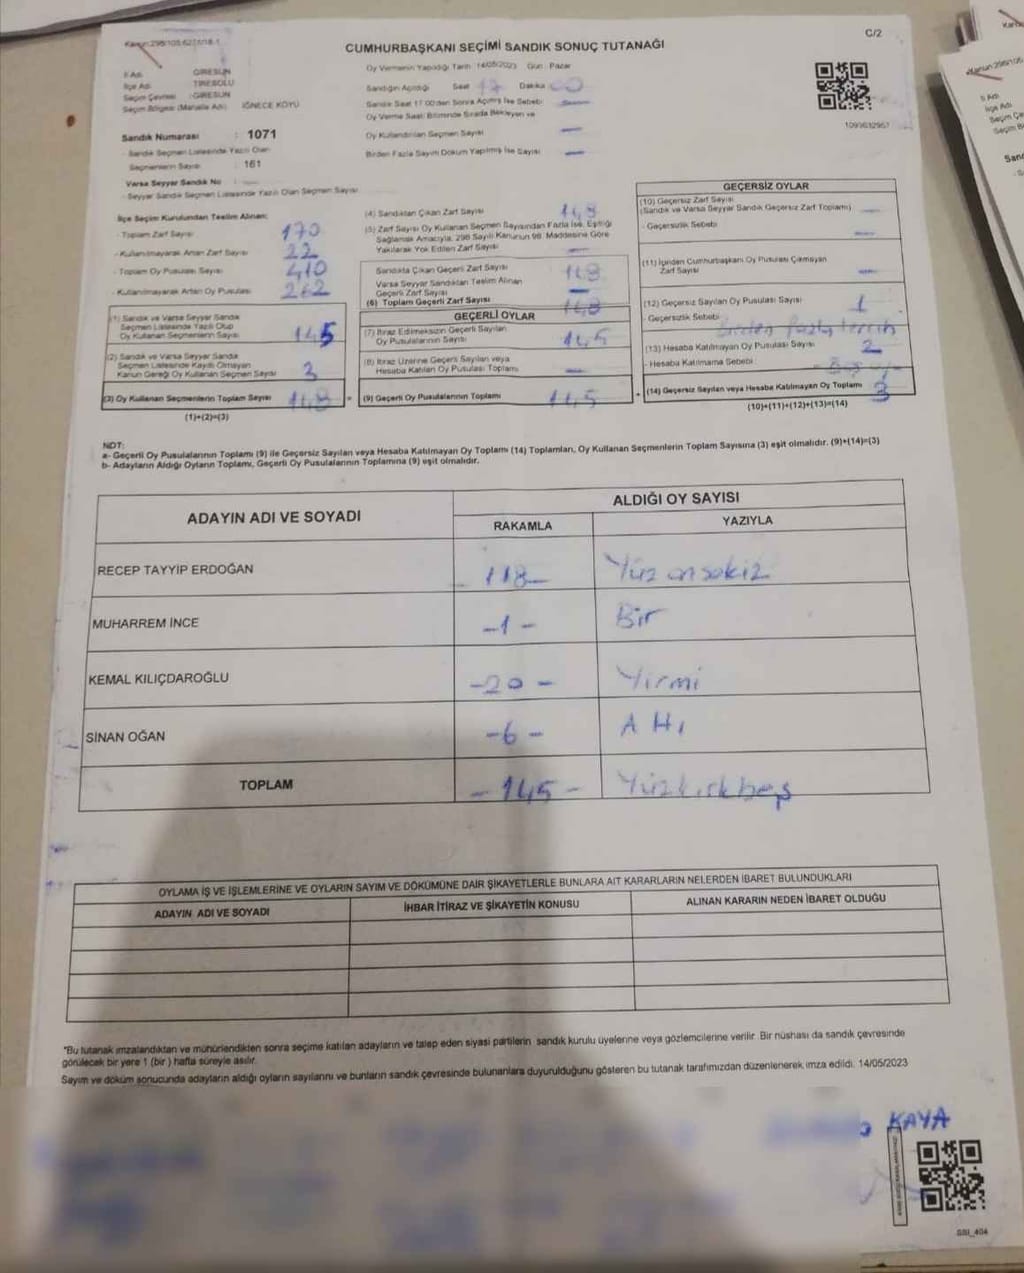 Kanun:298/105
C/2
CUMHURBAŞKANI SEÇİMİ SANDIK SONUÇ TUTANAĞI
İl Adı : GİRESUN
İlçe Adı : TİREBOLU
Seçim Çevresi : GİRESUN
Seçim Bölgesi (Mahalle Adı) : İĞNECE KÖYÜ
Sandık Numarası : 1071
- Sandık Seçmen Listesinde Yazılı Olan
Seçmenlerin Sayısı : 161
Varsa Seyyar Sandık No :
- Seyyar Sandık Seçmen Listesinde Yazılı Olan Seçmen Sayısı
Oy Vermenin Yapıldığı Tarih : 14/05/2023 Gün : Pazar
Sandığın Açıldığı Saat 17 Dakika 00
Sandık Saat 17.00'den Sonra Açılmış İse Sebebi
Oy Verme Saati Bitiminde Sırada Bekleyen ve
Oy Kullandırılan Seçmen Sayısı
Birden Fazla Sayım Döküm Yapılmış İse Sayısı
1093632967
İlçe Seçim Kurulundan Teslim Alınan:
- Toplam Zarf Sayısı 170
- Kullanılmayarak Artan Zarf Sayısı 22
- Toplam Oy Pusulası Sayısı 410
- Kullanılmayarak Artan Oy Pusulası 262
(1) Sandık ve Varsa Seyyar Sandık
Seçmen Listesinde Yazılı Olup
Oy Kullanan Seçmenlerin Sayısı 145
(2) Sandık ve Varsa Seyyar Sandık
Seçmen Listesinde Kayıtlı Olmayan
Kanun Gereği Oy Kullanan Seçmen Sayısı 3
(3) Oy Kullanan Seçmenlerin Toplam Sayısı 148
(1)+(2)=(3)
(4) Sandıktan Çıkan Zarf Sayısı 148
(5) Zarf Sayısı Oy Kullanan Seçmen Sayısından Fazla İse, Eşitliği
Sağlamak Amacıyla, 298 Sayılı Kanunun 98. Maddesine Göre
Yakılarak Yok Edilen Zarf Sayısı
Sandıkta Çıkan Geçerli Zarf Sayısı 148
Varsa Seyyar Sandıktan Teslim Alınan
Geçerli Zarf Sayısı
(6) Toplam Geçerli Zarf Sayısı 148
GEÇERLİ OYLAR
(7) İtiraz Edilmeksizin Geçerli Sayılan
Oy Pusulalarının Sayısı 145
(8) İtiraz Üzerine Geçerli Sayılan veya
Hesaba Katılan Oy Pusulası Toplamı
(9) Geçerli Oy Pusulalarının Toplamı 145
GEÇERSİZ OYLAR
(10) Geçersiz Zarf Sayısı
(Sandık ve Varsa Seyyar Sandık Geçersiz Zarf Toplamı)
- Geçersizlik Sebebi
(11) İçinden Cumhurbaşkanı Oy Pusulası Çıkmayan
Zarf Sayısı
(12) Geçersiz Sayılan Oy Pusulası Sayısı 1
- Geçersizlik Sebebi birden fazla tercih
(13) Hesaba Katılmayan Oy Pusulası Sayısı 2
- Hesaba Katılmama Sebebi
(14) Geçersiz Sayılan veya Hesaba Katılmayan Oy Toplamı 3
(10)+(11)+(12)+(13)=(14)
NOT:
a- Geçerli Oy Pusulalarının Toplamı (9) ile Geçersiz Sayılan veya Hesaba Katılmayan Oy Toplamı (14) Toplamları, Oy Kullanan Seçmenlerin Toplam Sayısına (3) eşit olmalıdır. (9)+(14)=(3)
b- Adayların Aldığı Oyların Toplamı, Geçerli Oy Pusulalarının Toplamına (9) eşit olmalıdır.
ADAYIN ADI VE SOYADI
ALDIĞI OY SAYISI
RAKAMLA YAZIYLA
RECEP TAYYİP ERDOĞAN 118 Yüz onsekiz
MUHARREM İNCE -1- Bir
KEMAL KILIÇDAROĞLU -20- Yirmi
SİNAN OĞAN -6- Altı
TOPLAM -145- Yüzkırkbeş
OYLAMA İŞ VE İŞLEMLERİNE VE OYLARIN SAYIM VE DÖKÜMÜNE DAİR ŞİKAYETLERLE BUNLARA AİT KARARLARIN NELERDEN İBARET BULUNDUKLARI
ADAYIN ADI VE SOYADI İHBAR İTİRAZ VE ŞİKAYETİN KONUSU ALINAN KARARIN NEDEN İBARET OLDUĞU
*Bu tutanak imzalandıktan ve mühürlendikten sonra seçime katılan adayların ve talep eden siyasi partilerin sandık kurulu üyelerine veya gözlemcilerine verilir. Bir nüshası da sandık çevresinde
görülecek bir yere 1 (bir) hafta süreyle asılır.
Sayım ve döküm sonucunda adayların aldığı oyların sayılarını ve bunların sandık çevresinde bulunanlara duyurulduğunu gösteren bu tutanak tarafımızdan düzenlenerek imza edildi. 14/05/2023
KAYA